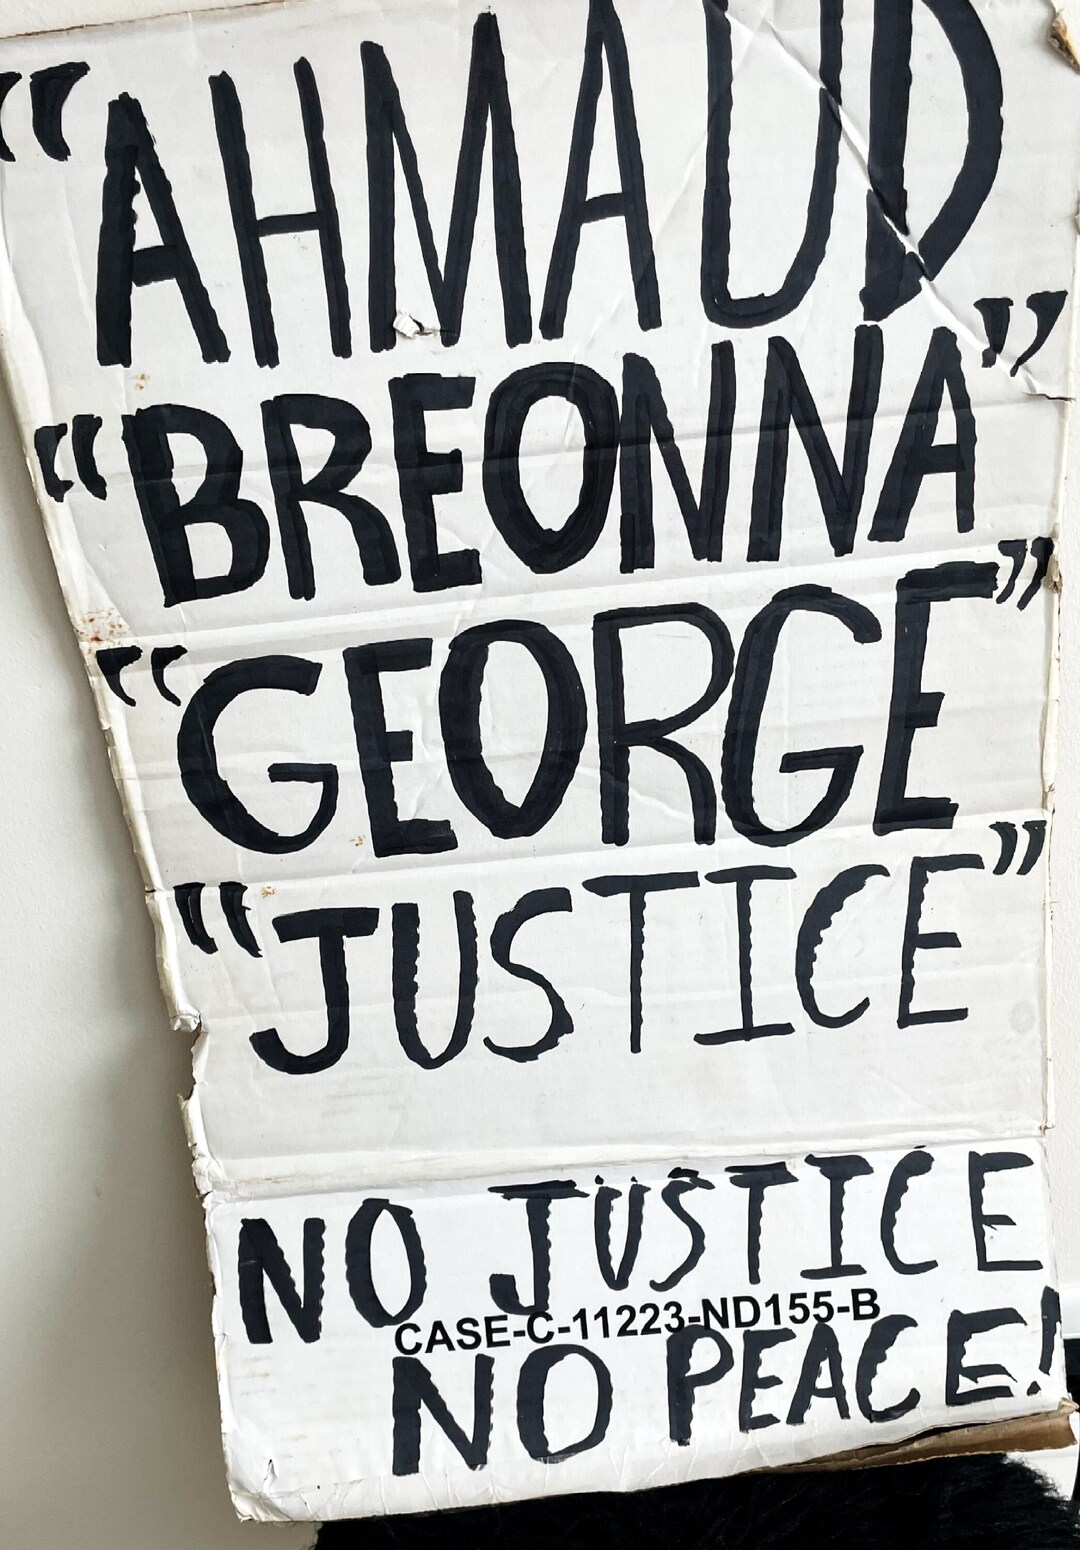 "AHMAUD"
"BREONNA"
"GEORGE"
"JUSTICE"
NO JUSTICE
CASE-C-11223-ND155-B
NO PEACE!